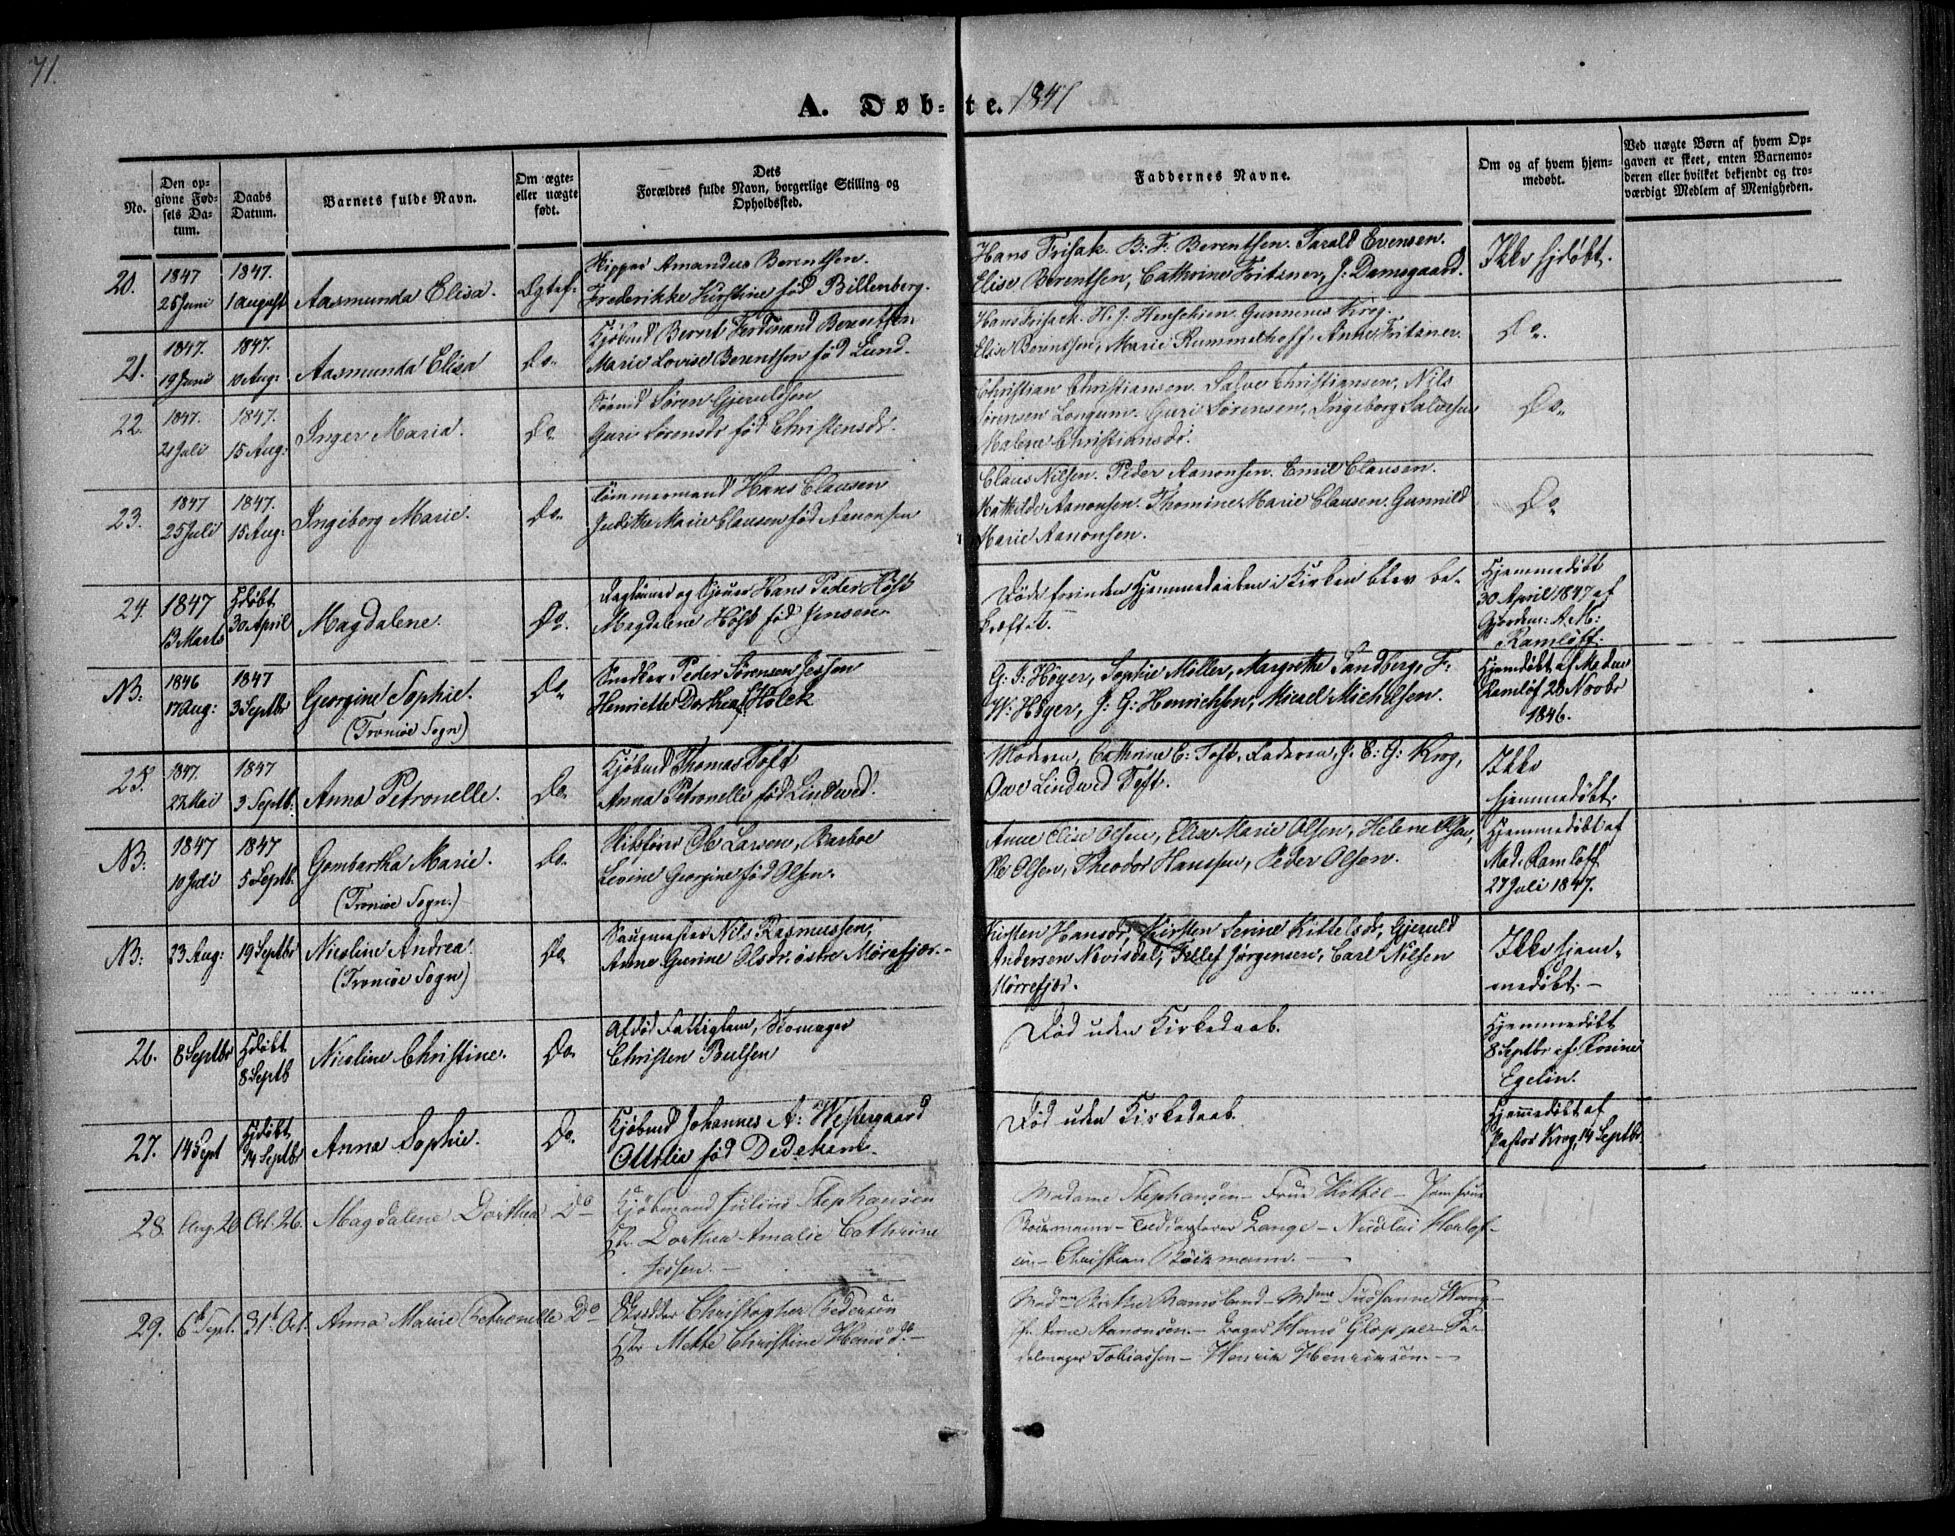 71.
A. Døb-te. 1847
No.
Den op-
givne Fød-
sels Da-
tum.
Daabs
Datum.
Barnets fulde Navn.
Om ægte-
eller uægte
født.
Dets
Forældres fulde Navn, borgerlige Stilling og
Opholdssted.
Faddernes Navne.
Om og af hvem hjem-
medøbt.
Ved uægte Børn af hvem Op-
gaven er skeet, enten Barnemo-
deren eller hvilket bekjendt og tro-
værdigt Medlem af Menigheden.
20. 1847 25 Juni 1847. 1 August Aasmunda Elisa. Ægtef:
Skipper Amandus Berentsen.
Frederikke Kirstine fød Billenberg.
Hans Frisak. B: F: Berentsen. Tarald Evensen.
Elise Berentsen, Cathrine Fritzner, J: Damsgaard.
Ikke hjdøbt.
21. 1847. 19 Juni 1847. 10 Aug: Aasmunda Elisa Do.
Kjøbmd Bernt Ferdinand Berentsen
Marie Lovise Berentsen fød Lund.
Hans Frisak. H. J. Henschien. Krog.
Elise Berentsen, Marie Rummelhoff, Anne Fritzner.
Do.
22. 1847. 21 Juli 1847. 15 Aug: Inger Maria. Do
Sømd Søren Gjeruldsen
Guri Sørensdr fød Christensdr.
Christian Christiansen. Salve Christiansen, Nils
Sørensen Longum. Guri Sørensen, Ingeborg Salvesen
Malene Christiansdr.
Do.
23. 1847 25 Juli 1847. 15 Aug: Ingeborg Marie. Do.
Tømmermand Hans Clausen
Judithe Marie Clausen fød Aanonsen
Claus Nilsen. Peder Aanonsen. Emil Clausen.
Mathilde Aanonsen. Thomine Marie Clausen. Gunnild
Marie Aanonsen.
Do
24. 1847 13 Marts Hdøbt 30 April Magdalene. Do.
Dagl og Hans Peder Høst
Magdalene Høst fød Jensen.
Døde forinden Hjemmedaaben i Kirken blev be-
kræftet.
Hjemmedøbt
30 April 1847 af
Gjordem: A. M:
Ramløff.
NB: 1846 17 Aug: 1847 3 Septbr Georgine Sophie. (Tromøe Sogn) Do.
Snedker Peder Sørensen Jessen
Henriette Dorthea f. Holck
G: F: Høyer, Sophie Møller, Margrethe Sandberg, F:
W: Høyer, J: G: Henrichsen, Micael Michelsen.
Hjemdøbt af Madme
Ramløf 28 Novbr
1846.
25. 1847. 27 Mai 1847 3 Septb. Anna Petronelle. Do.
Kjøbmd Thomas Toft
Anna Petronelle fød Lindved.
Moderen, Cathrine C: Toft, Faderen, J: E: G: Krog,
Ove Lindved Toft.
Ikke
hjemmedøbt.
NB: 1847 10 Juli 1847 5 Septb. Gombertha Marie. (Tromøe Sogn.) Do.
Skibsfører Ole Larsen, Barboe
Levine Georgine fød Olsen.
Anne Elise Olsen, Elise Marie Olsen, Helene Olsen,
Olsen, Theodor Hanssen, Peder Olsen.
Hjemmedøbt af
Mad. Ramløff
27 Juli 1847.
NB: 23 Aug: 19 Septbr Nicoline Andrea. (Tromøe Sogn) Do
Saugmester Nils Rasmussen,
Anne Gurine Olsdr. østre Mørefjær.
Kirsten Hansdr, Kirsten Serine Kittelsdr, Gjeruld
Andersen Nevisdal, Tellef Jørgensen, Carl Nilsen
Mørrefjær.
Ikke hjem-
medøbt.
26. 8 Septbr Hdøbt 8 Septb Nicoline Christine. Do.
Afdød Fattiglem, Skomager
Christen Bulsen
Død uden Kirkedaab.
Hjemmedøbt
8 Septbr af Rosine
Egelin.
27. 14 Sept Hdøbt 14 Septbr Anna Sophie. Do.
Kjøbmd Johannes A: Westergaard
Ottilia fød Dedekam.
Død uden Kirkedaab.
Hjemmedøbt af
Pastor Krog, 14 Septbr
28. Aug. 26 Oct. 26. Magdalene Dorthea Do
Kjøbmand Julius Stephansen
Hst Dorthea Amalie Cathrine
Jessen.
Madame Stephansen - Frue - Jomfrue
Böckmann - Lange - Nicolai Herlof-
sen - Christian Böckmann.
29. 6te Sept. 31te Oct. Anna Marie Petronelle Do
Christopher Pedersen
Hst Mette Christine Hansdr.
Madme Birthe Ramsland - Mdme Susanne Wang -
Jfr. Anne Aanonsen - Hans Gloppe - Sa-
delmager Tobiassen - Henrik Henriksen.